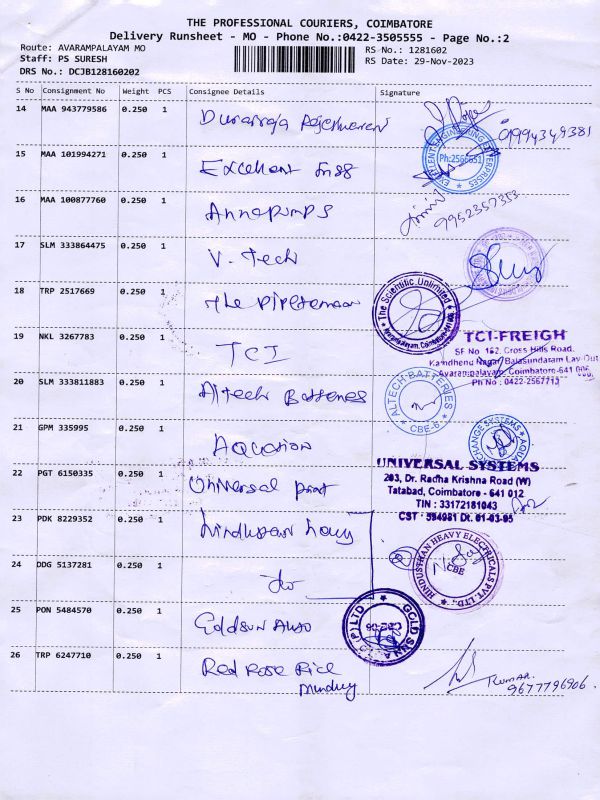 THE PROFESSIONAL COURIERS, COIMBATORE
Delivery Runsheet - MO - Phone No.:0422-3505555 - Page No.:2
Route: AVARAMPALAYAM MO
RS No.: 1281602
Staff: PS SURESH
RS Date: 29-Nov-2023
DRS No.: DCJB128160202
S No Consignment No Weight PCS Consignee Details Signature
14 MAA 943779586 0.250 1
09994349381
EXCELLENT ENGINEERING ENTERPRISES
Ph:2566651
15 MAA 101994271 0.250 1 Excellent Engg
16 MAA 100877760 0.250 1 Annapumps
9952357353
17 SLM 333864475 0.250 1 V. Tech
18 TRP 2517669 0.250 1 The
The Scientific Unlimited
Avarampalayam, Coimbatore
19 NKL 3267783 0.250 1 TCI
TCI-FREIGH
SF No 152, Cross Hills Road,
Kamdhenu Nagar, Balasundaram Lay-Out
Avarampalayam, Coimbatore-641 006
Ph No : 0422-2567713
20 SLM 333811883 0.250 1 Altech Batteries
ALTECH-BATTERIES
CBE-6
21 GPM 335995 0.250 1 Aquation
22 PGT 6150335 0.250 1 Universal
UNIVERSAL SYSTEMS
203, Dr. Radha Krishna Road (W)
Tatabad, Coimbatore - 641 012
TIN : 33172181043
CST - 594981 Dt. 01-03-95
23 PDK 8229352 0.250 1 Hindustan heavy
HINDUSTHAN HEAVY ELECTRICALS PVT. LTD.
CBE
24 DDG 5137281 0.250 1 do
25 PON 5484570 0.250 1 Goldsun Auto
26 TRP 6247710 0.250 1 Red Rose Rice
Mundy
KUMAR.
9677796906